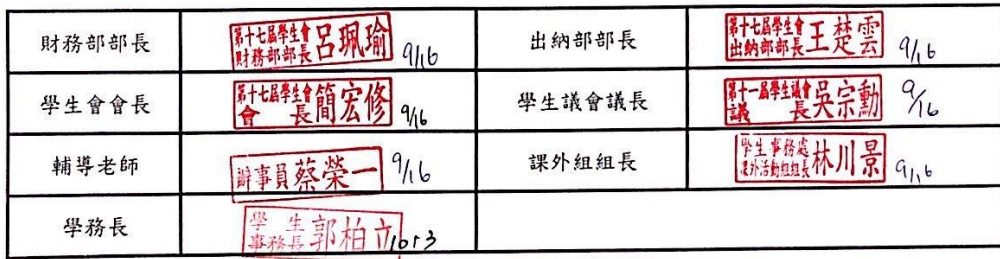 財務部部長 第十七屆學生會財務部部長呂珮瑜 9/16 出納部部長 第十七屆學生會出納部部長王楚雲 9/16
學生會會長 第十七屆學生會會長簡宏修 9/16 學生議會議長 第十一屆學生議會議長吳宗勳 9/16
輔導老師 辦事員蔡榮一 9/16 課外組組長 學生事務處課外活動組組長林川景 9/16
學務長 學生事務長郭柏立 1013